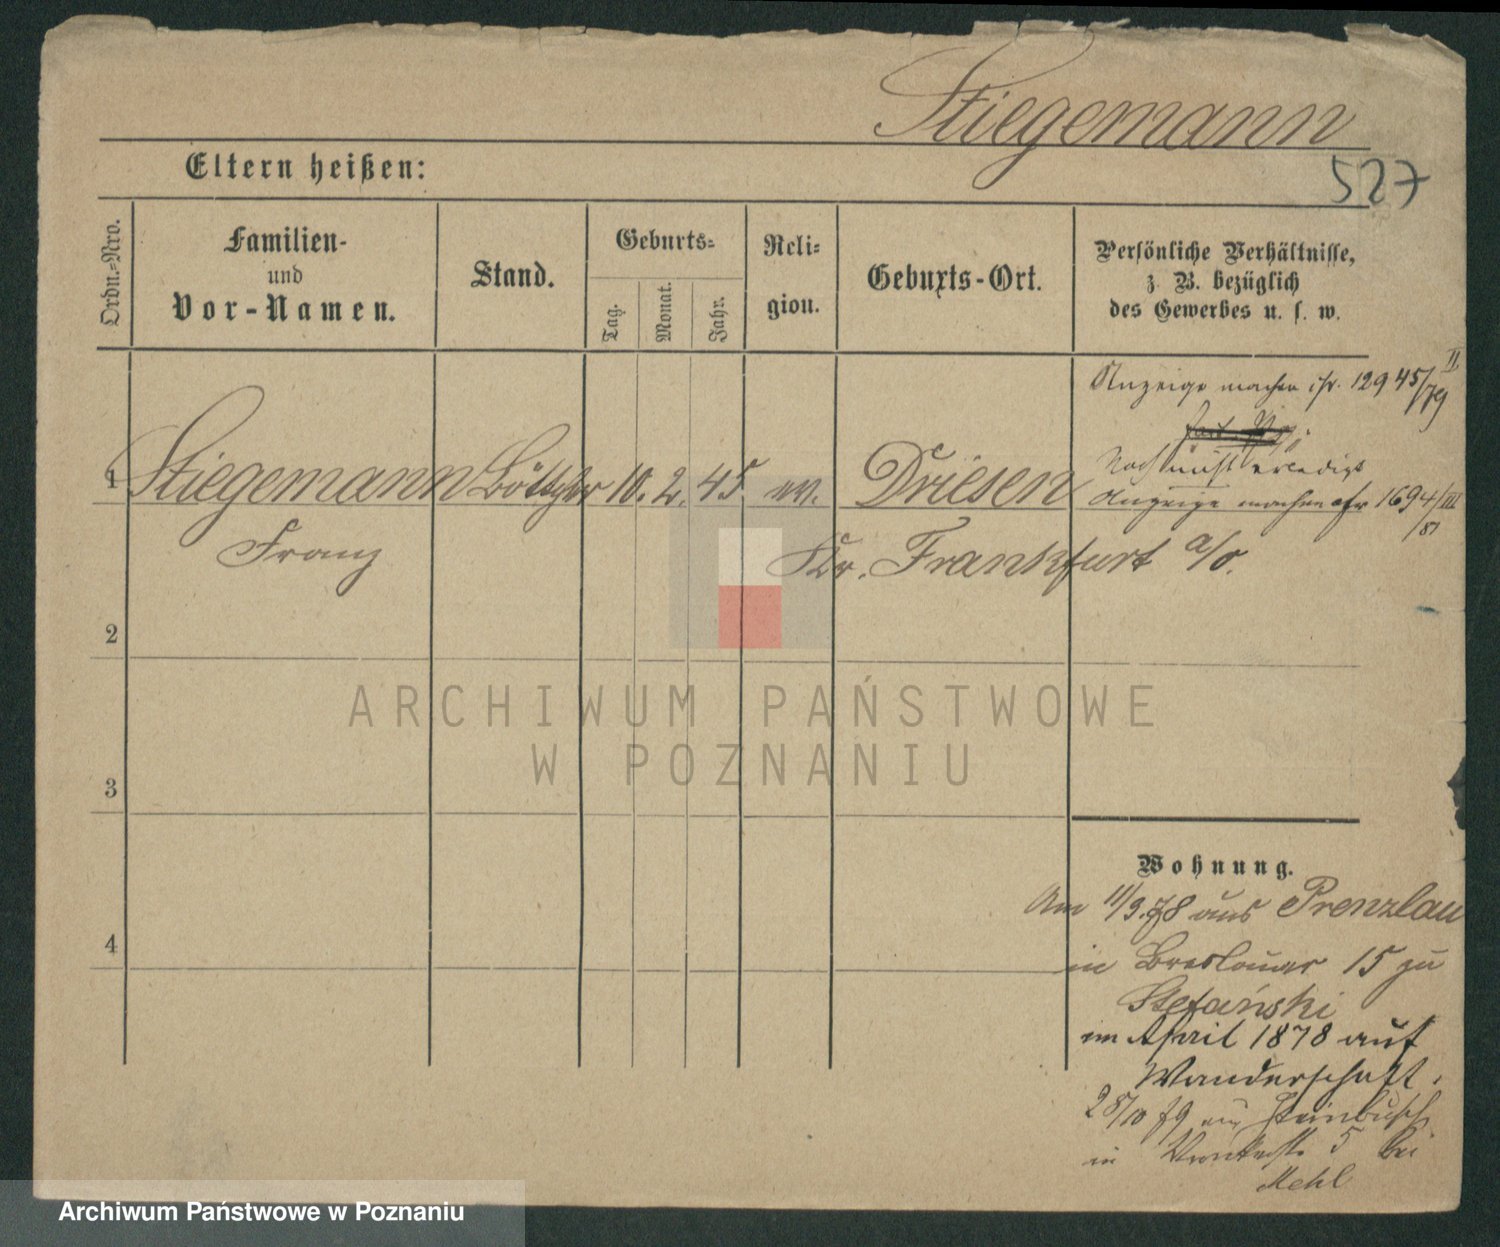 Stiegemann
527
Eltern heißen:
Ordn.-Nro.
Familien-
und
Vor-Namen.
Stand.
Geburts-
Tag.
Monat.
Jahr.
Reli-
gion.
Geburts-Ort.
Persönliche Verhältnisse,
z. B. bezüglich
des Gewerbes u. s. w.
Anzeige machen 12945/79 II
Noch nicht erledigt
Anzeige machen 1694/81 III
1 Stiegemann Böttcher 10. 2. 45 ev. Driesen
Franz Kr. Frankfurt a/O.
2
3
4
ARCHIWUM PAŃSTWOWE
W POZNANIU
Wohnung.
Am 11/3.78 aus Prenzlau
in Breslauer 15 zu
Stefański
im April 1878 auf
Wanderschaft.
28/10 79 aus Steinbusch
in 5 bei
Mehl
Archiwum Państwowe w Poznaniu